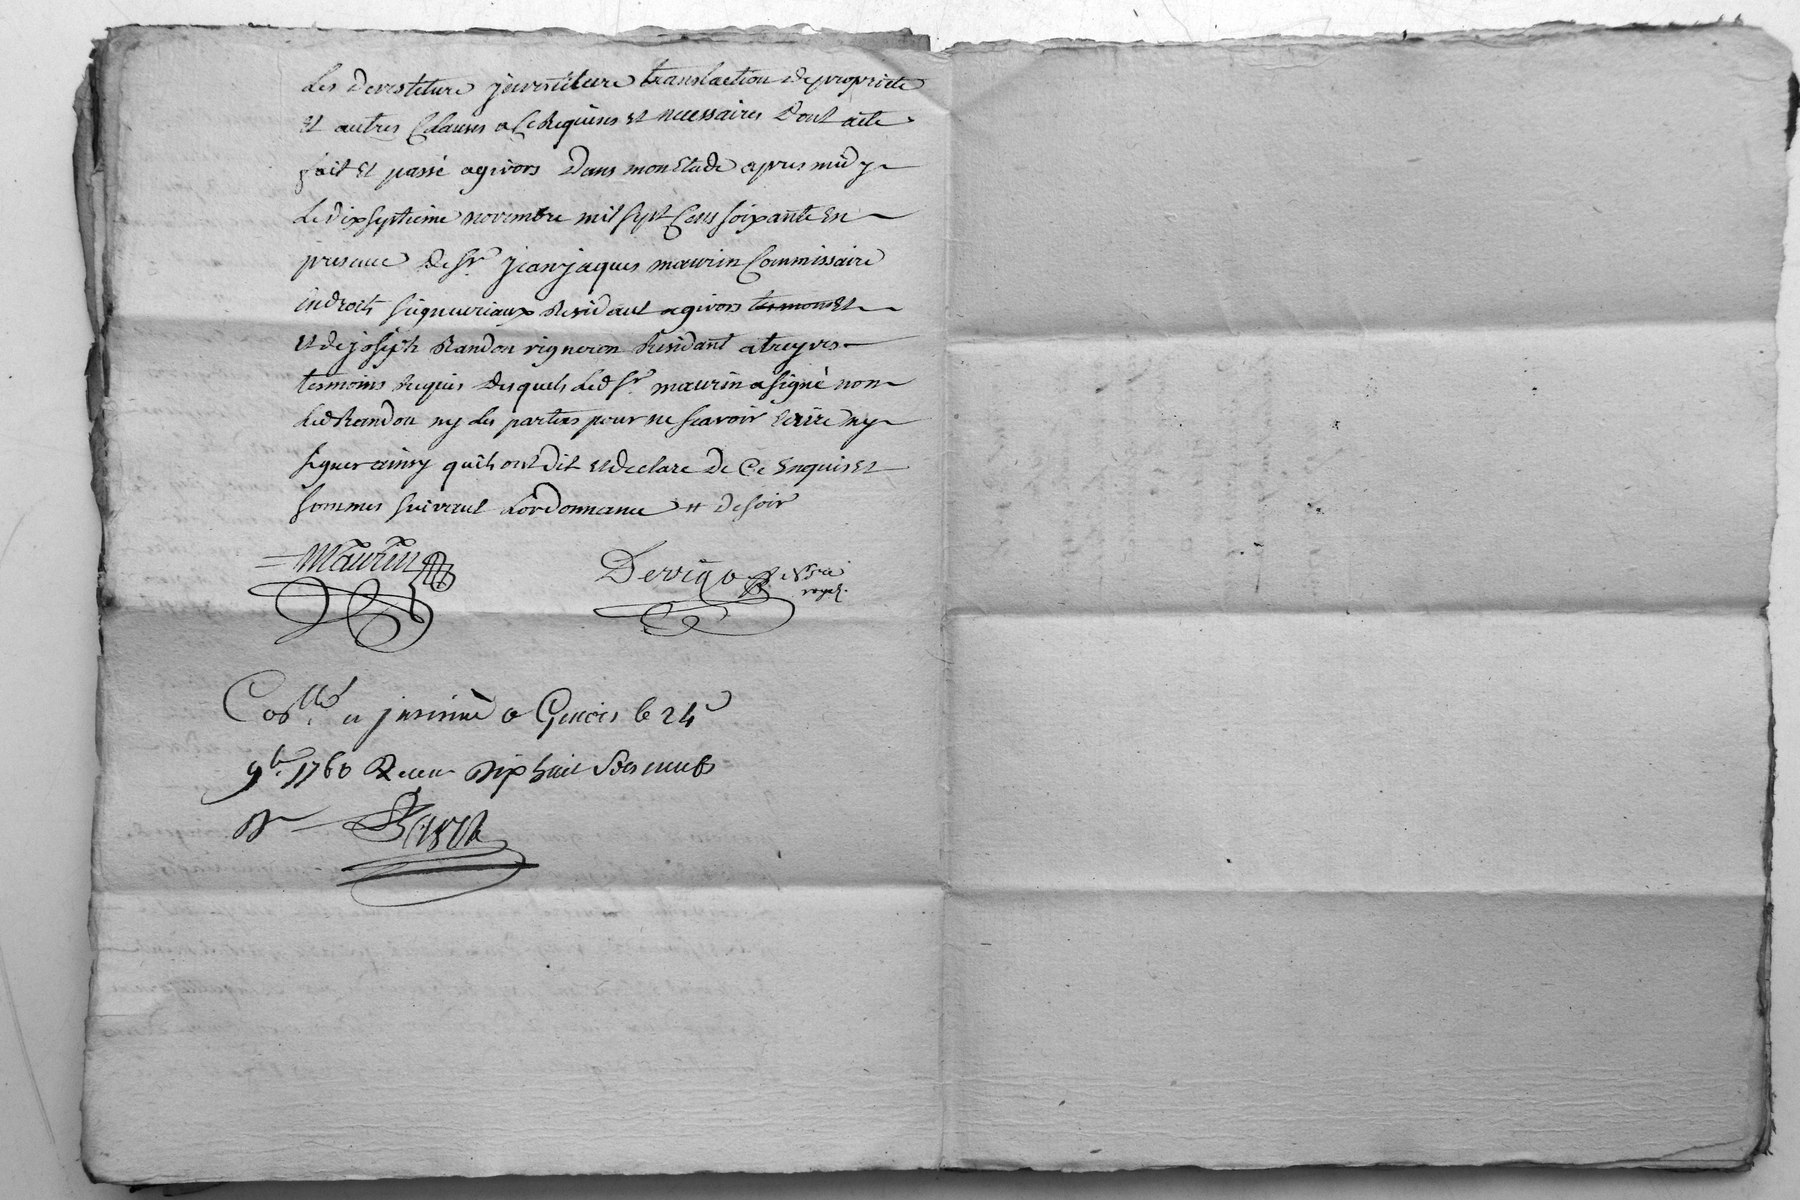 Les devestiture jnvestiture translaction de propriete
Et autres Clauses a Ce Requises Et necessaires Dont acte
fait Et passé a givors Dans mon Etude apres midy
Le dixseptieme novembre mil sept Cens soixante En
presence de Sr. jean jaques maurin Commissaire
En droits seigneuriaux Residant a givors
Et de joseph Randon vigneron Residant a treyves
tesmoins Requis Desquels Led Sr. maurin a signé non
Led Randon ny Les parties pour ne scavoir Ecrire ny
signer ainsy quils ont dit Et declare de Ce Enquis Et
sommes suivant Lordonnance
Maurin
Dervieo
royal.
Collé et jnsinué a Givors le 24e
9b. 1760 Receu dix huit sols